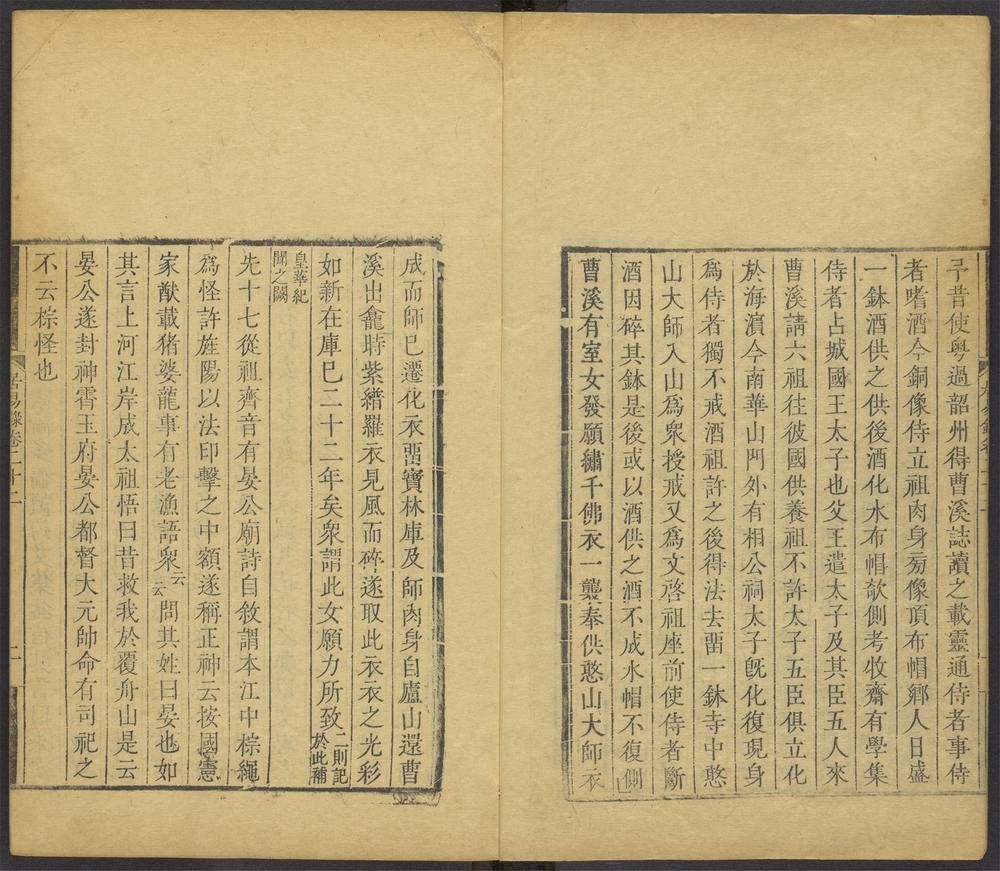 予昔使粤過韶州得曹溪誌讀之載靈通侍者事侍
者嗜酒今銅像侍立祖肉身旁像頂布帽鄉人日盛
一鉢酒供之供後酒化水布帽欹側考牧齋有學集
侍者占城國王太子也父王遣太子及其臣五人來
曹溪請六祖往彼國供養祖不許太子五臣俱立化
於海濵今南華山門外有相公祠太子旣化復現身
爲侍者獨不戒酒祖許之後得法去畱一鉢寺中憨
山大師入山爲衆授戒又爲文啓祖座前使侍者斷
酒因碎其鉢是後或以酒供之酒不成水帽不復側
曹溪有室女發願繡千佛衣一襲奉供憨山大師衣
成而師已遷化衣畱寶林庫及師肉身自廬山還曹
溪出龕時紫縉羅衣見風而碎遂取此衣衣之光彩
如新在庫巳二十二年矣衆謂此女願力所致二則記於此補
皇華紀聞之闕
先十七從祖齊音有晏公廟詩自敘謂本江中棕繩
爲怪許旌陽以法印擊之中額遂稱正神云按國憲
家猷載猪婆龍事有老漁語衆云云問其姓曰晏也如
其言上河江岸成太祖悟曰昔救我於覆舟山是云
晏公遂封神霄玉府晏公都督大元帥命有司祀之
不云棕怪也
居易錄卷二十二
二